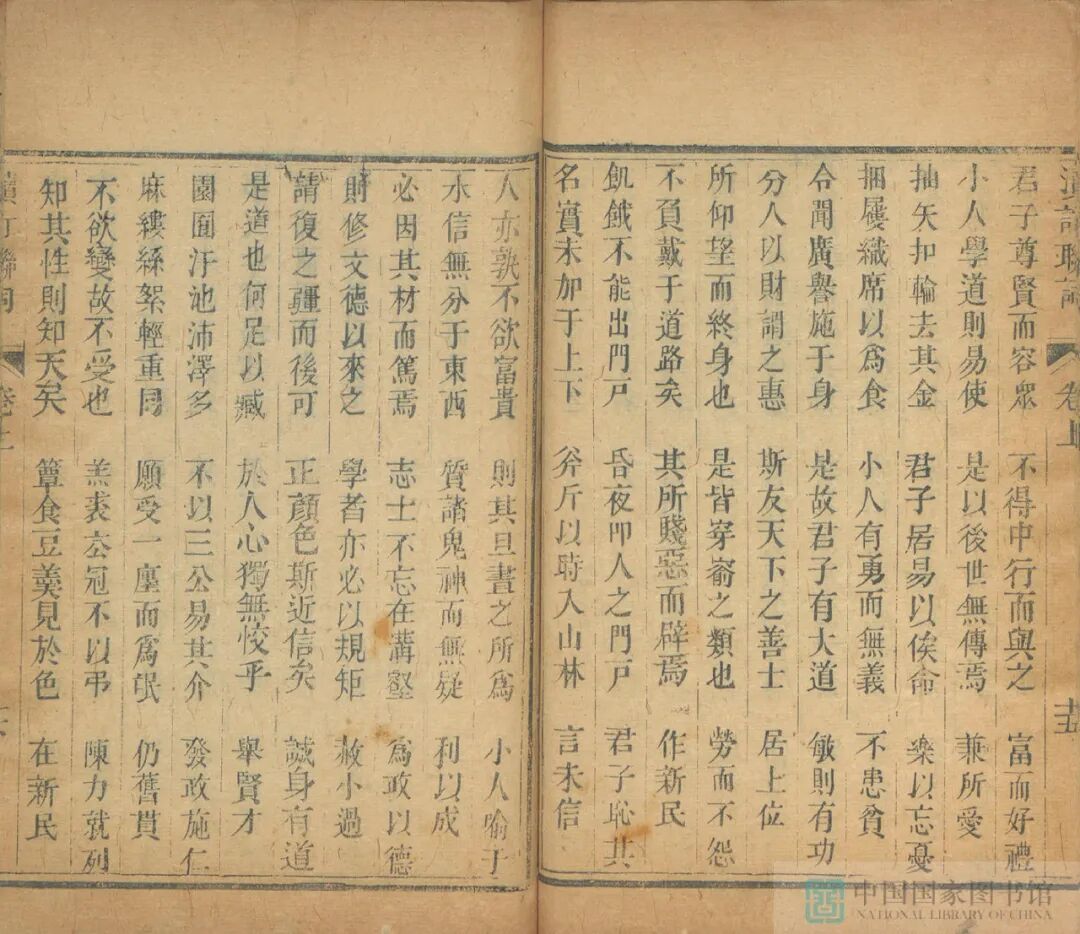 卷上
君子尊賢而容眾 不得中行而與之 富而好禮
小人學道則易使 是以後世無傳焉 兼所愛
抽矢扣輪去其金 君子居易以俟命 樂以忘憂
捆屨織席以為食 小人有勇而無義 不患貧
令聞廣譽施于身 是故君子有大道 敏則有功
分人以財謂之惠 斯友天下之善士 居上位
所仰望而終身也 是皆穿窬之類也 勞而不怨
不負戴于道路矣 其所賤惡而辟焉 作新民
飢餓不能出門戸 昏夜叩人之門戸 君子恥其
名實未加于上下 斧斤以時入山林 言未信
人亦孰不欲富貴 則其旦晝之所為 小人喻于
水信無分于東西 質諸鬼神而無疑 利以成
必因其材而篤焉 志士不忘在溝壑 為政以德
則修文德以來之 學者亦必以規矩 赦小過
請復之疆而後可 正顏色斯近信矣 誠身有道
是道也何足以臧 於人心獨無恔乎 舉賢才
園囿汙池沛澤多 不以三公易其介 發政施仁
麻縷絲絮輕重同 願受一廛而為氓 仍舊貫
不欲變故不受也 羔裘玄冠不以弔 陳力就列
知其性則知天矣 簞食豆羹見於色 在新民
中国国家图书馆
NATIONAL LIBRARY OF CHINA